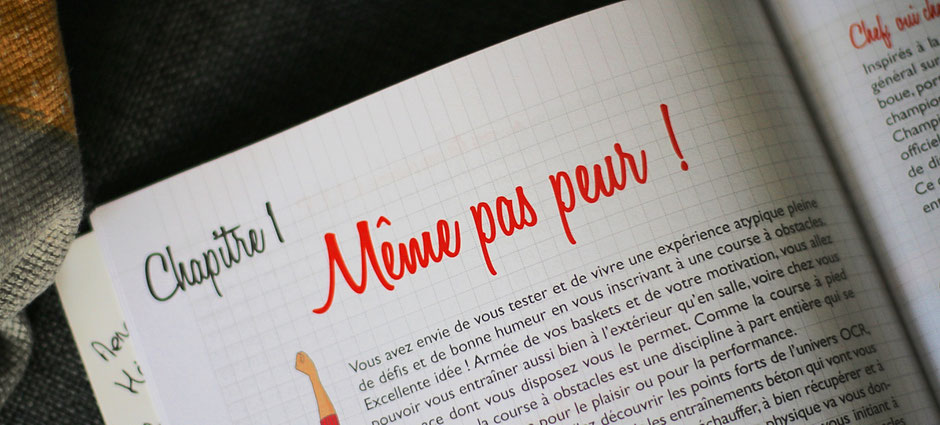 Chapitre 1
Même pas peur !
Vous avez envie de vous tester et de vivre une expérience atypique pleine
de défis et de bonne humeur en vous inscrivant à une course à obstacles.
Excellente idée ! Armée de vos baskets et de votre motivation, vous allez
pouvoir vous entraîner aussi bien à l'extérieur qu'en salle, voire chez vous
dont vous disposez vous le permet. Comme la course à pied
la course à obstacles est une discipline à part entière qui se
pour le plaisir ou pour la performance.
découvrir les points forts de l'univers OCR,
les entraînements béton qui vont vous
échauffer, à bien récupérer et à
physique va vous don-
vous initiant à
Chef, oui
Inspirés à la
général sur
boue, por
champion
Champi
officiel
de di
Ce
ent